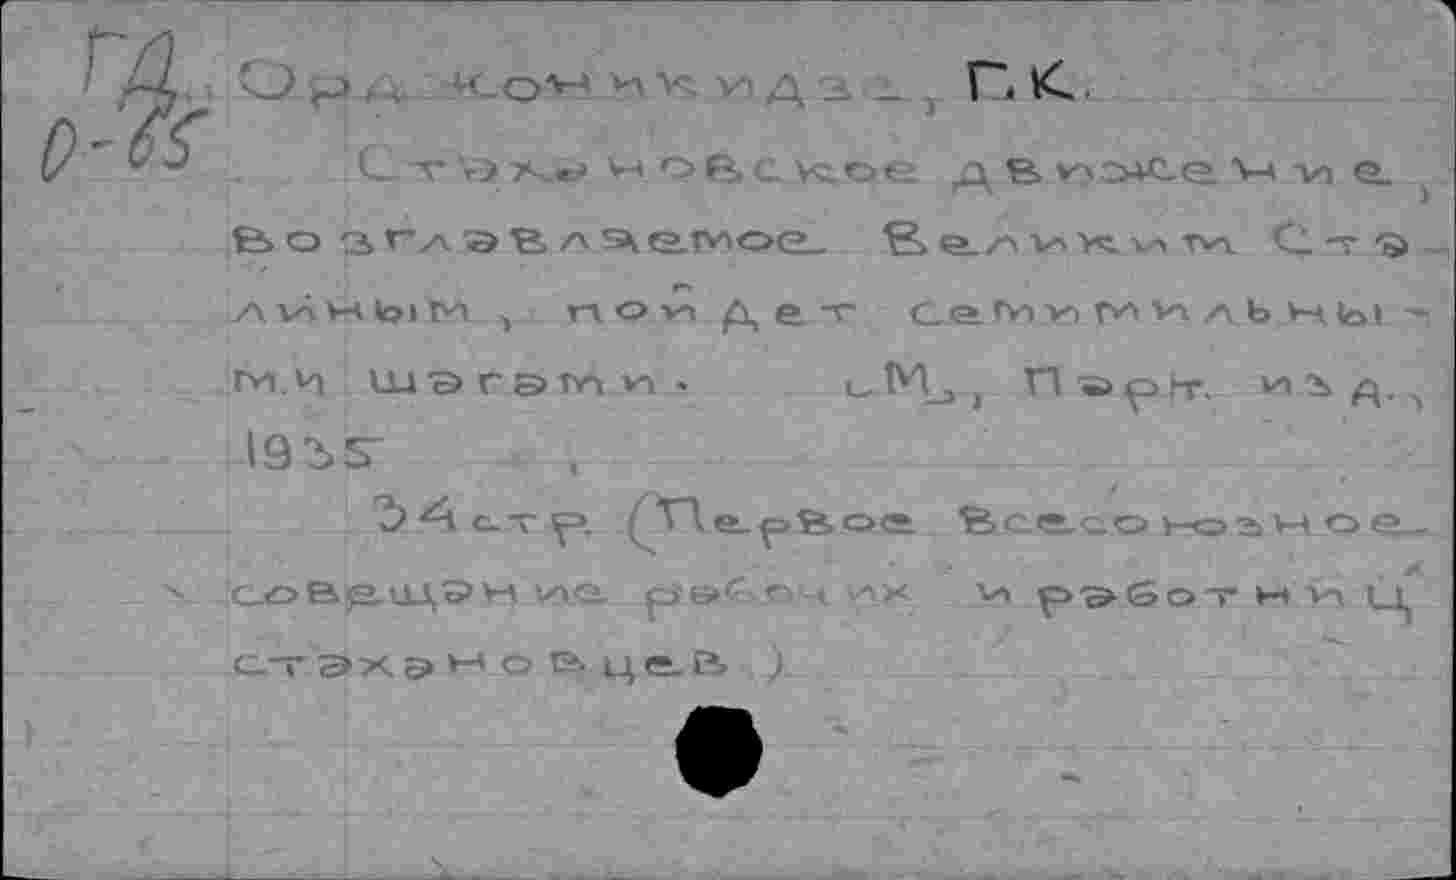 ГД
О-65
Орджоникидзе, Г.К.
Стахановское движение,
возглавляемое Великим Ста-
линым, пойдет семимильны-
ми шагами. [М.], Парт. изд.,
1935
34 стр. (Первое Всесоюзное
совещание рабочих и работниц
стахановцев)